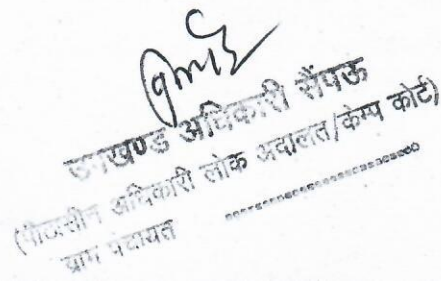 उपखण्ड अधिकारी सैंपऊ
(पीठासीन अधिकारी लोक अदालत/केम्प कोर्ट)
ग्राम पंचायत ....................